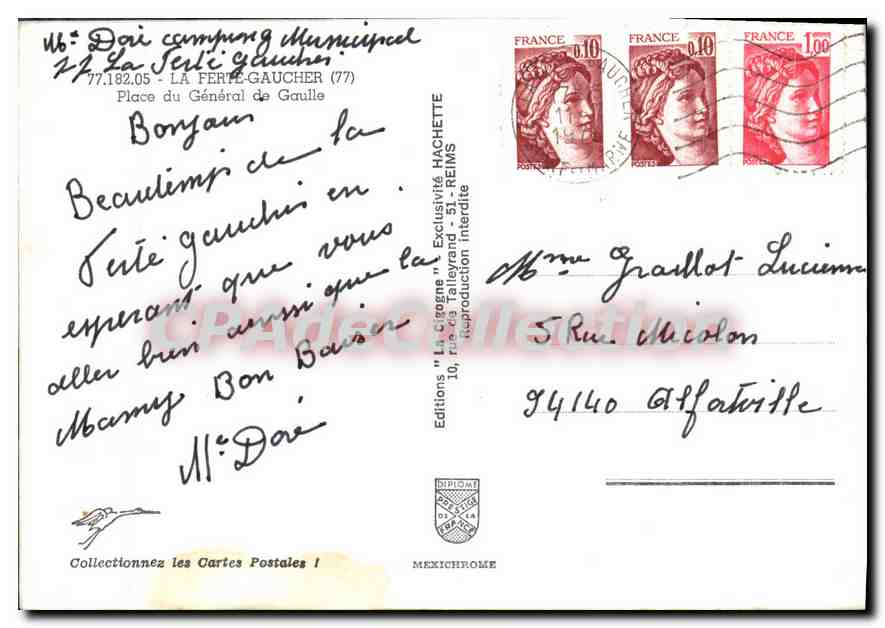 Me Doré camping Municipal
77 La Ferté Gaucher
77.182.05 - LA FERTÉ-GAUCHER (77)
Place du Général de Gaulle
Bonjour
Beautemps de la
Ferté gaucher en
esperant que vous
aller bien aussi que la
Mamy Bon Baiser
Me Doré
Collectionnez les Cartes Postales !
Editions "La Cigogne" - Exclusivité HACHETTE
10, rue de Talleyrand - 51 - REIMS
Reproduction interdite
DIPLOME
PRESTIGE
DE LA
FRANCE
MEXICHROME
FRANCE 0,10 POSTES
FRANCE 0,10 POSTES
FRANCE 1,00
GAUCHER
MARNE
Mme Graillot Lucienne
5 Rue Micolon
94140 Alfortville
CPAdeCollection